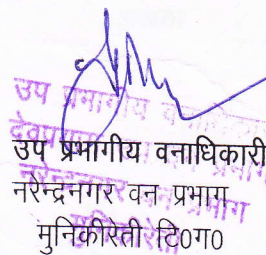 उप प्रभागीय वनाधिकारी
उप प्रभागीय वनाधिकारी
नरेन्द्रनगर वन प्रभाग
मुनिकीरेती टि०ग०